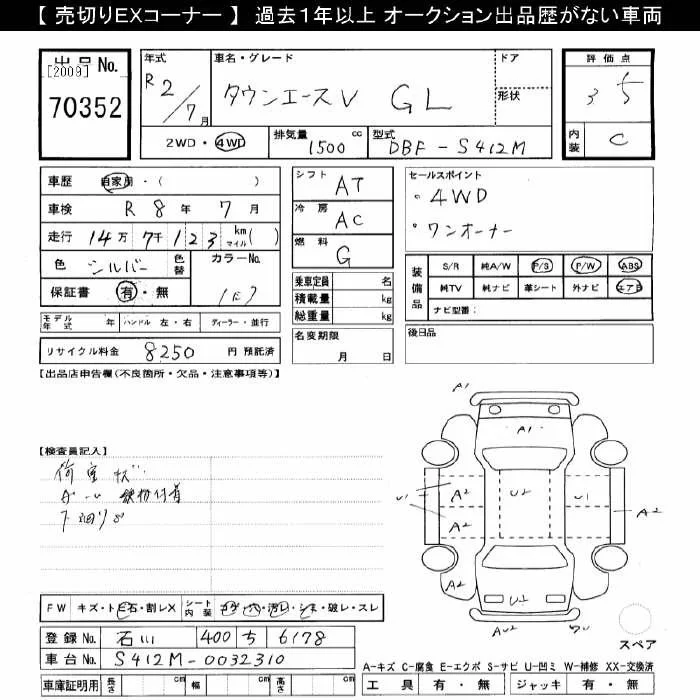 【 売切りEXコーナー 】 過去１年以上 オークション出品歴がない車両
出品No.
[2009]
70352
年式 R2/7月
車名・グレード タウンエースV GL
ドア
形状
2WD・4WD
排気量 1500 cc
型式 DBF-S412M
評価点 3.5
内装 C
車歴 自家用・( )
車検 R 8 年 7 月
走行 14万 7千 1 2 3 km マイル( )
色 シルバー 色替 カラーNo.
保証書 有・無 1E7
モデル年式 年 ハンドル 左・右 ディーラー・並行
リサイクル料金 8250 円 預託済
シフト AT
冷房 AC
燃料 G
乗車定員 名
積載量 kg
総重量 kg
名変期限 月 日
セールスポイント
・4WD
・ワンオーナー
装備品
S/R 純A/W P/S P/W ABS
純TV 純ナビ 革シート 外ナビ エアB
ナビ型番:
後日品
【出品店申告欄(不良箇所・欠品・注意事項等)】
【検査員記入】
荷室キズ
鉄粉付着
下廻りサビ
A1
A1
U1 A2 U2 U1
A2 A2
A2 A2
U2
AU2
FW キズ・トビ石・割レX シート内装 コゲ・穴・汚レ・シミ・破レ・スレ
登録No. 石川 400 ち 6178
車台No. S412M-0032310
車庫証明用 長さ cm 幅 cm 高さ cm
スペア
A-キズ C-腐食 E-エクボ S-サビ U-凹ミ W-補修 XX-交換済
工具 有・無 ジャッキ 有・無